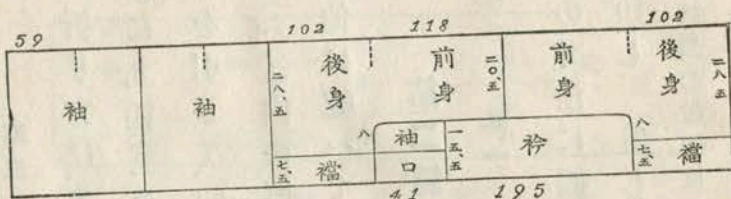 59
102
118
102
袖
袖
二八、五
後身
前身
二〇、五
前身
後身
二八、五
八
袖口
一五、五
衿
八
七、五
襠
七、五
襠
41
195